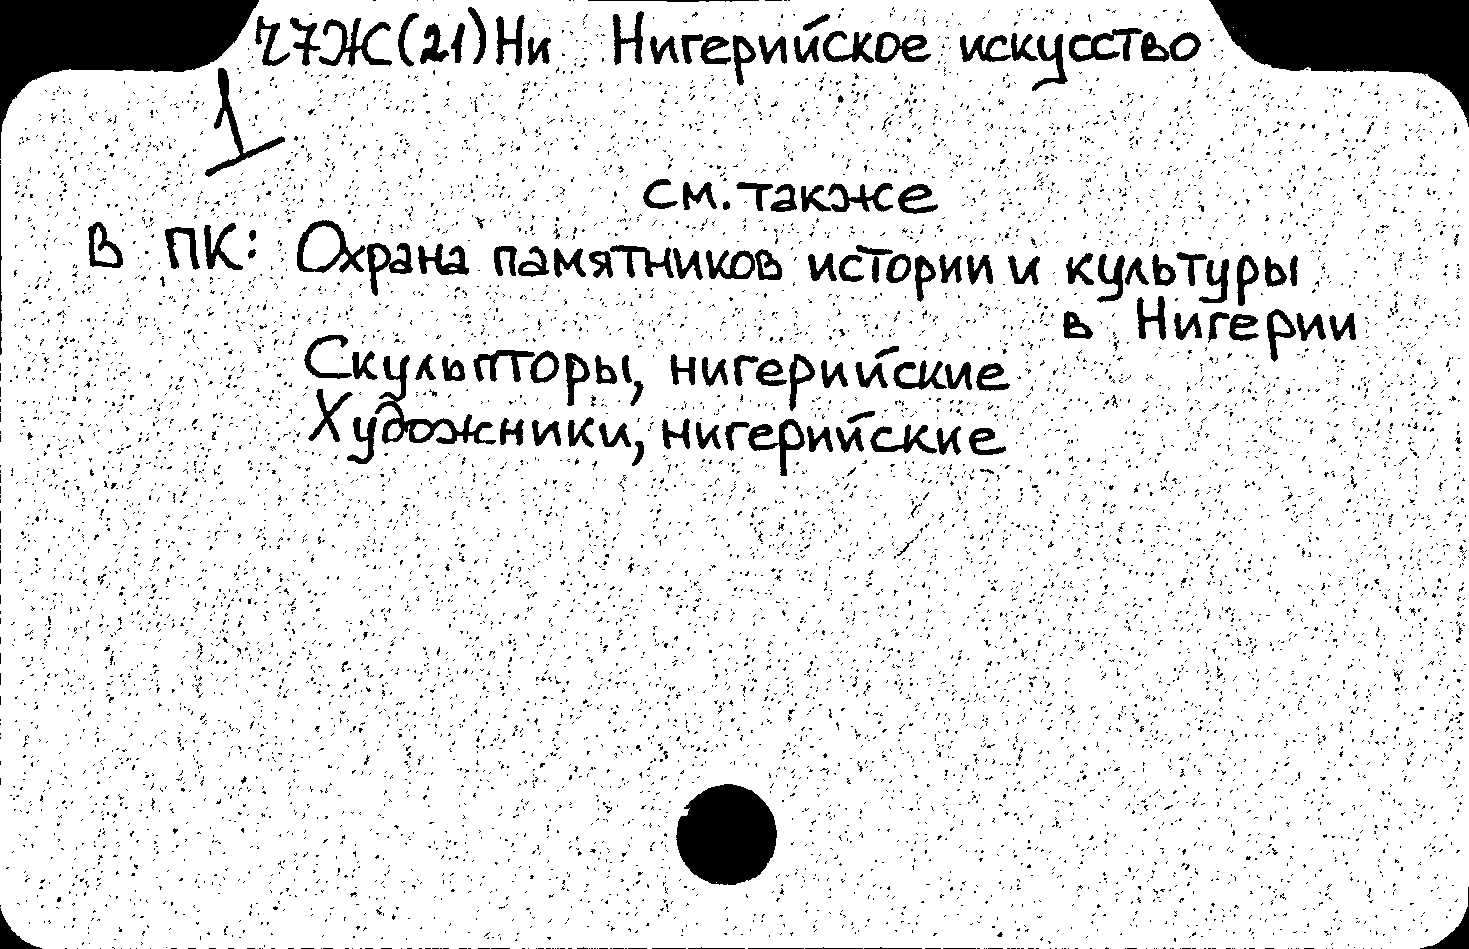 Ч7Ж(21)Ни Нигерийское искусство
1
см. также
в ПК: Охрана памятников истории и культуры
в Нигерии
Скульпторы, нигерийские
Художники, нигерийские